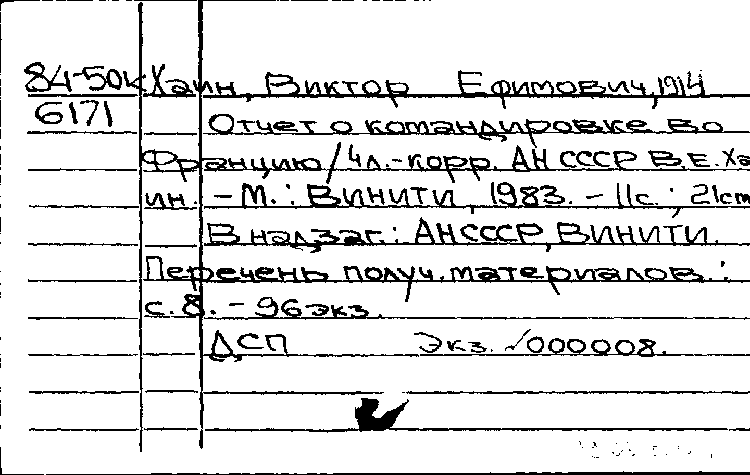 84-50к Хаин, Виктор Ефимович, 1914
6171 Отчет о командировке во
Францию / Чл.-корр. АН СССР В.Е. Ха
ин. - М.: ВИНИТИ, 1983. - 11с.; 21см
В надзаг.: АН СССР, ВИНИТИ.
Перечень получ. материалов.:
с. 8. - 96 экз.
ДСП Экз. √000008.